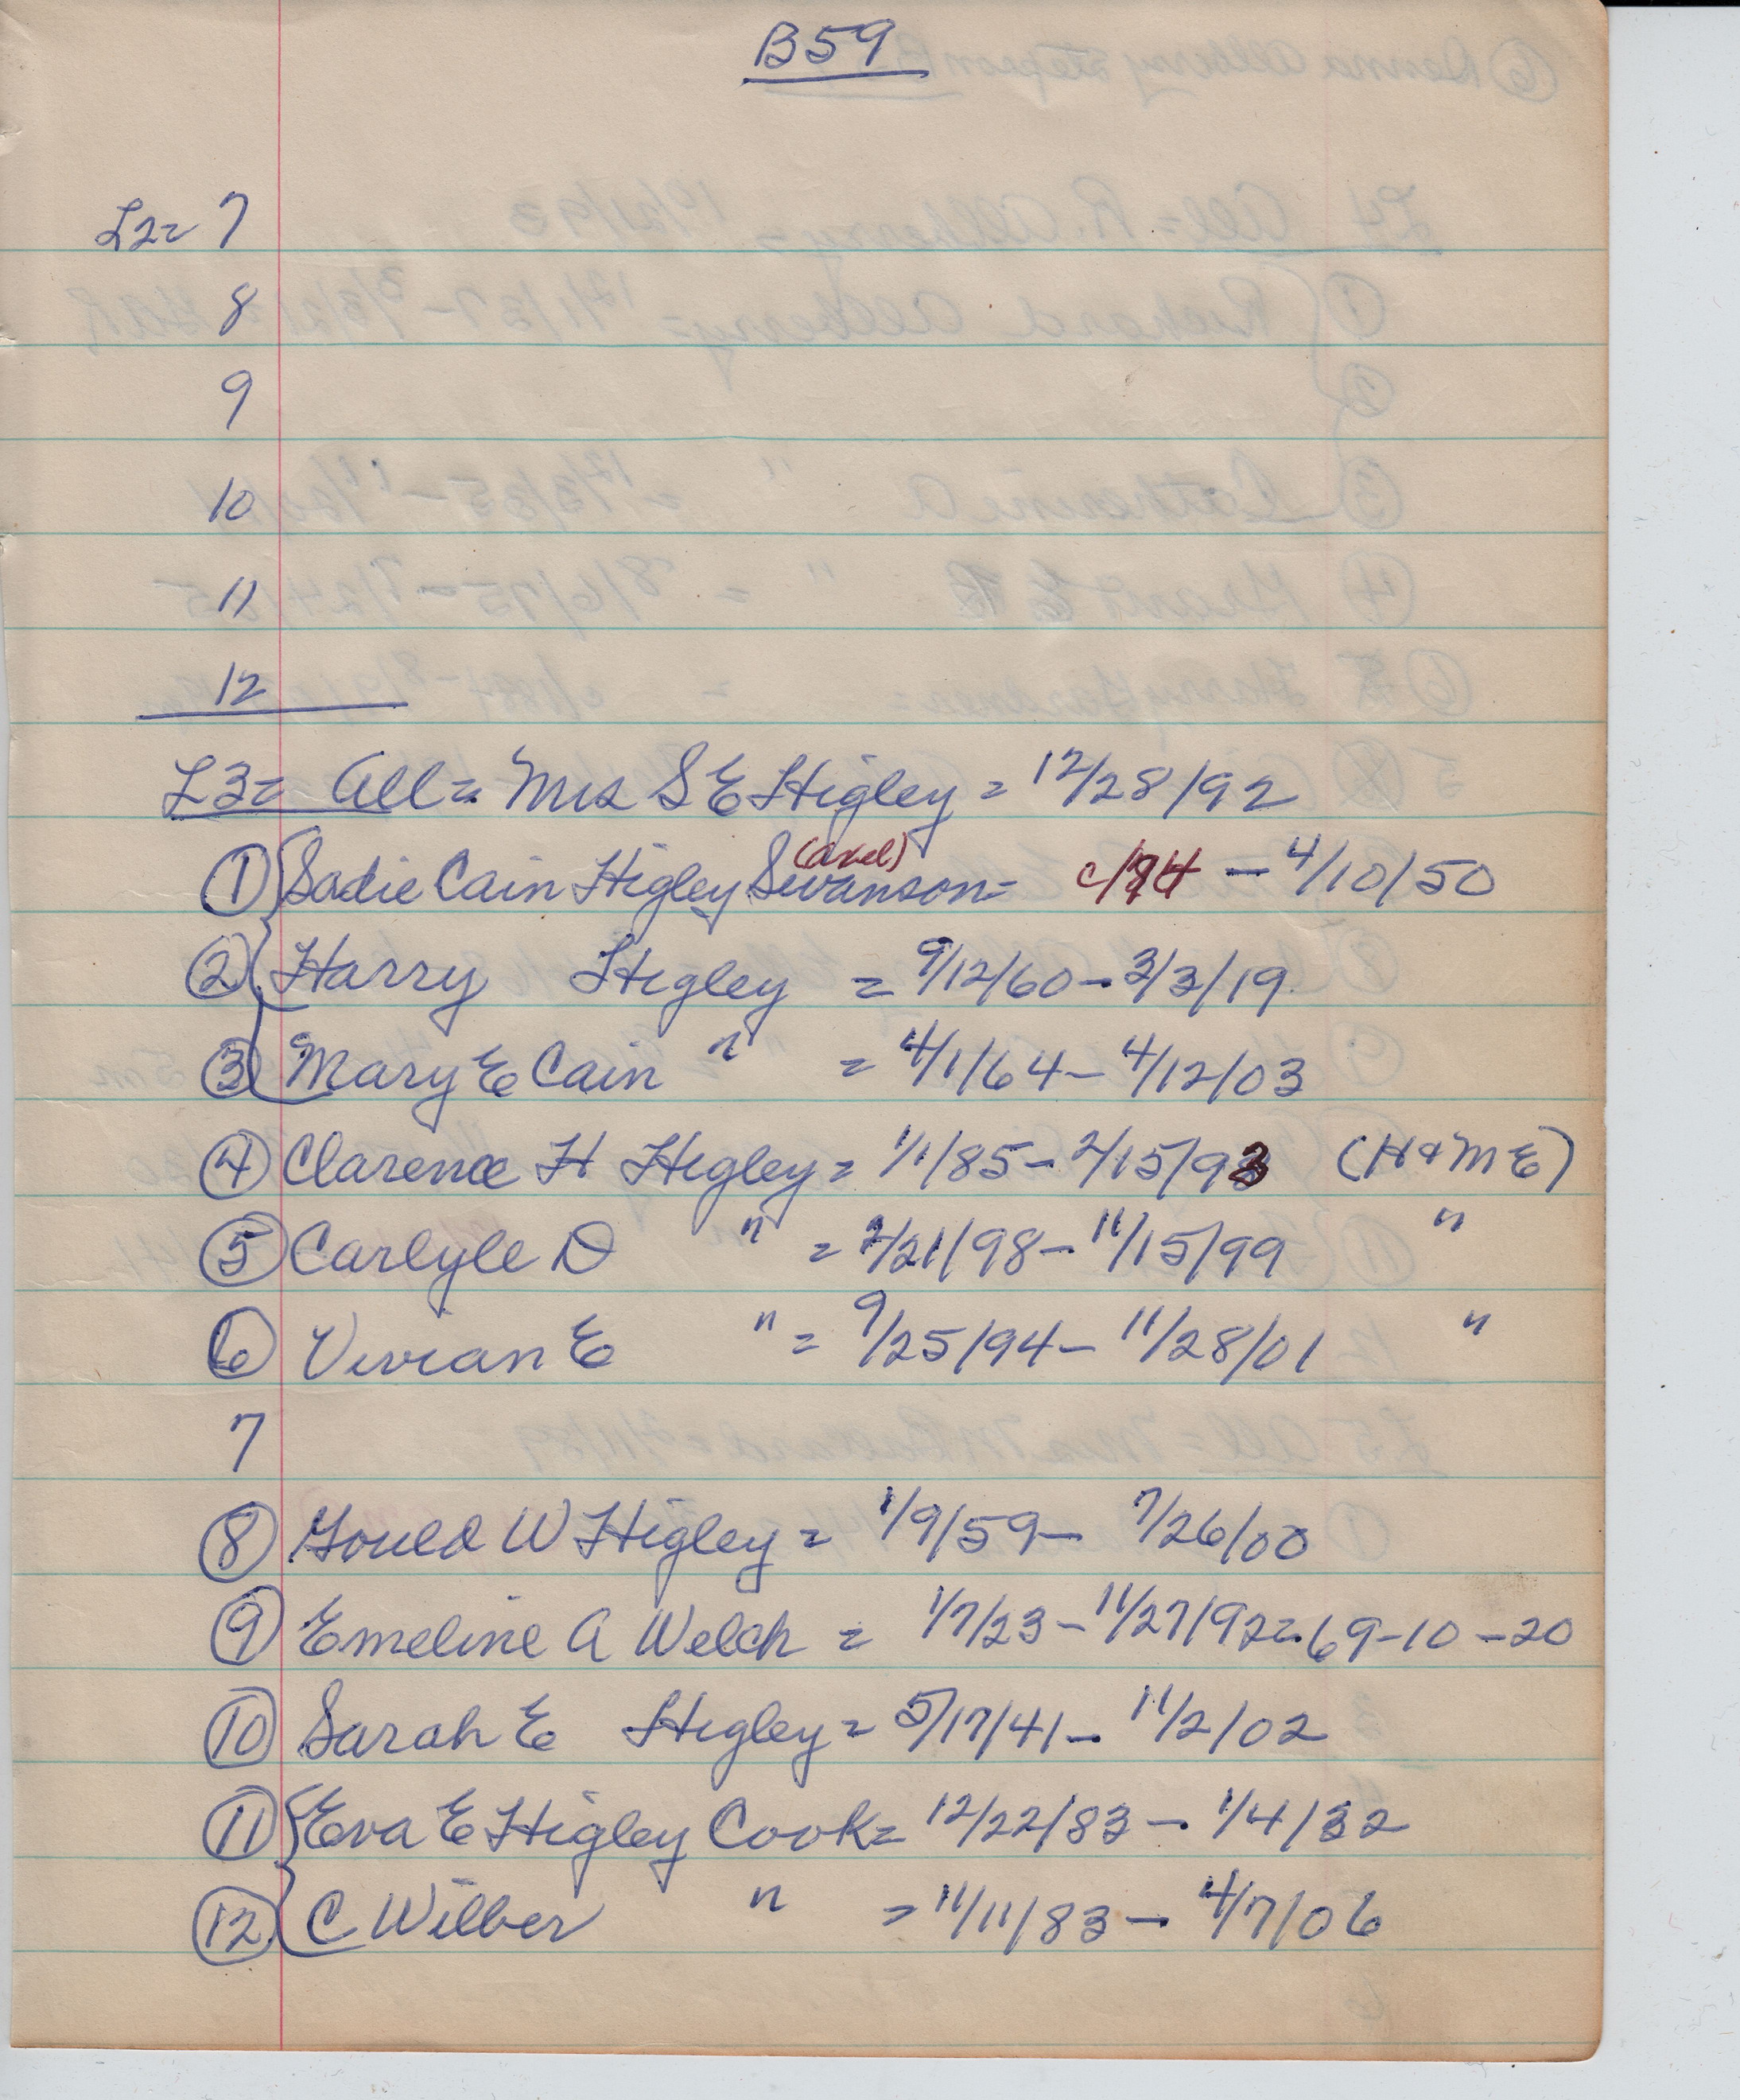 B59
L2= 7
8
9
10
11
12
L3= All = Mrs S E Higley = 12/28/92
(Axel)
① Sadie Cain Higley Swanson = c/ - 4/10/50
② Harry Higley = 9/12/60 - 3/3/19
③ Mary E Cain " = 4/1/64 - 4/12/03
④ Clarence H Higley = 1/1/85 - 2/15/93 (H & M E)
⑤ Carlyle D " = 2/21/98 - 11/15/99 "
⑥ Vivian E " = 9/25/94 - 11/28/01 "
7
⑧ Gould W Higley = 1/9/59 - 7/26/00
⑨ Emeline A Welch = 1/7/23 - 11/27/92 = 69-10-20
⑩ Sarah E Higley = 5/17/41 - 11/2/02
⑪ Eva E Higley Cook = 12/22/83 - 1/4/32
⑫ C Wilber " = 11/11/83 - 4/7/06